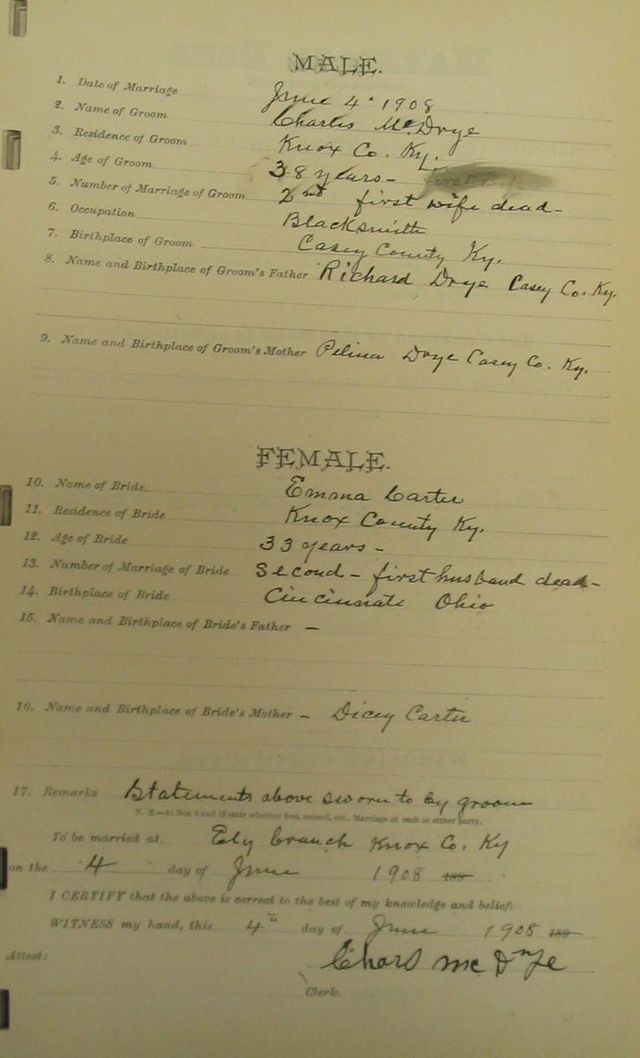 MALE.
1. Date of Marriage June 4" 1908
2. Name of Groom Charles McDrye
3. Residence of Groom Knox Co. Ky.
4. Age of Groom 38 years-
5. Number of Marriage of Groom 2nd first wife dead-
6. Occupation Blacksmith
7. Birthplace of Groom Casey County Ky.
8. Name and Birthplace of Groom's Father Richard Drye Casey Co. Ky.
9. Name and Birthplace of Groom's Mother Pelina Drye Casey Co. Ky.
FEMALE.
10. Name of Bride Emma Carter
11. Residence of Bride Knox County Ky.
12. Age of Bride 33 years-
13. Number of Marriage of Bride Second- first husband dead-
14. Birthplace of Bride Cincinnati Ohio
15. Name and Birthplace of Bride's Father -
16. Name and Birthplace of Bride's Mother - Dicey Carter
17. Remarks Statements above sworn to by groom
N. B.—At Nos. 5 and 13 state whether first, second, etc., Marriage of each or either party.
To be married at Ely branch Knox Co. Ky
on the 4 day of June 1908 189
I CERTIFY that the above is correct to the best of my knowledge and belief.
WITNESS my hand, this 4th day of June 1908 189
Attest: Chars Mc Drye
Clerk.